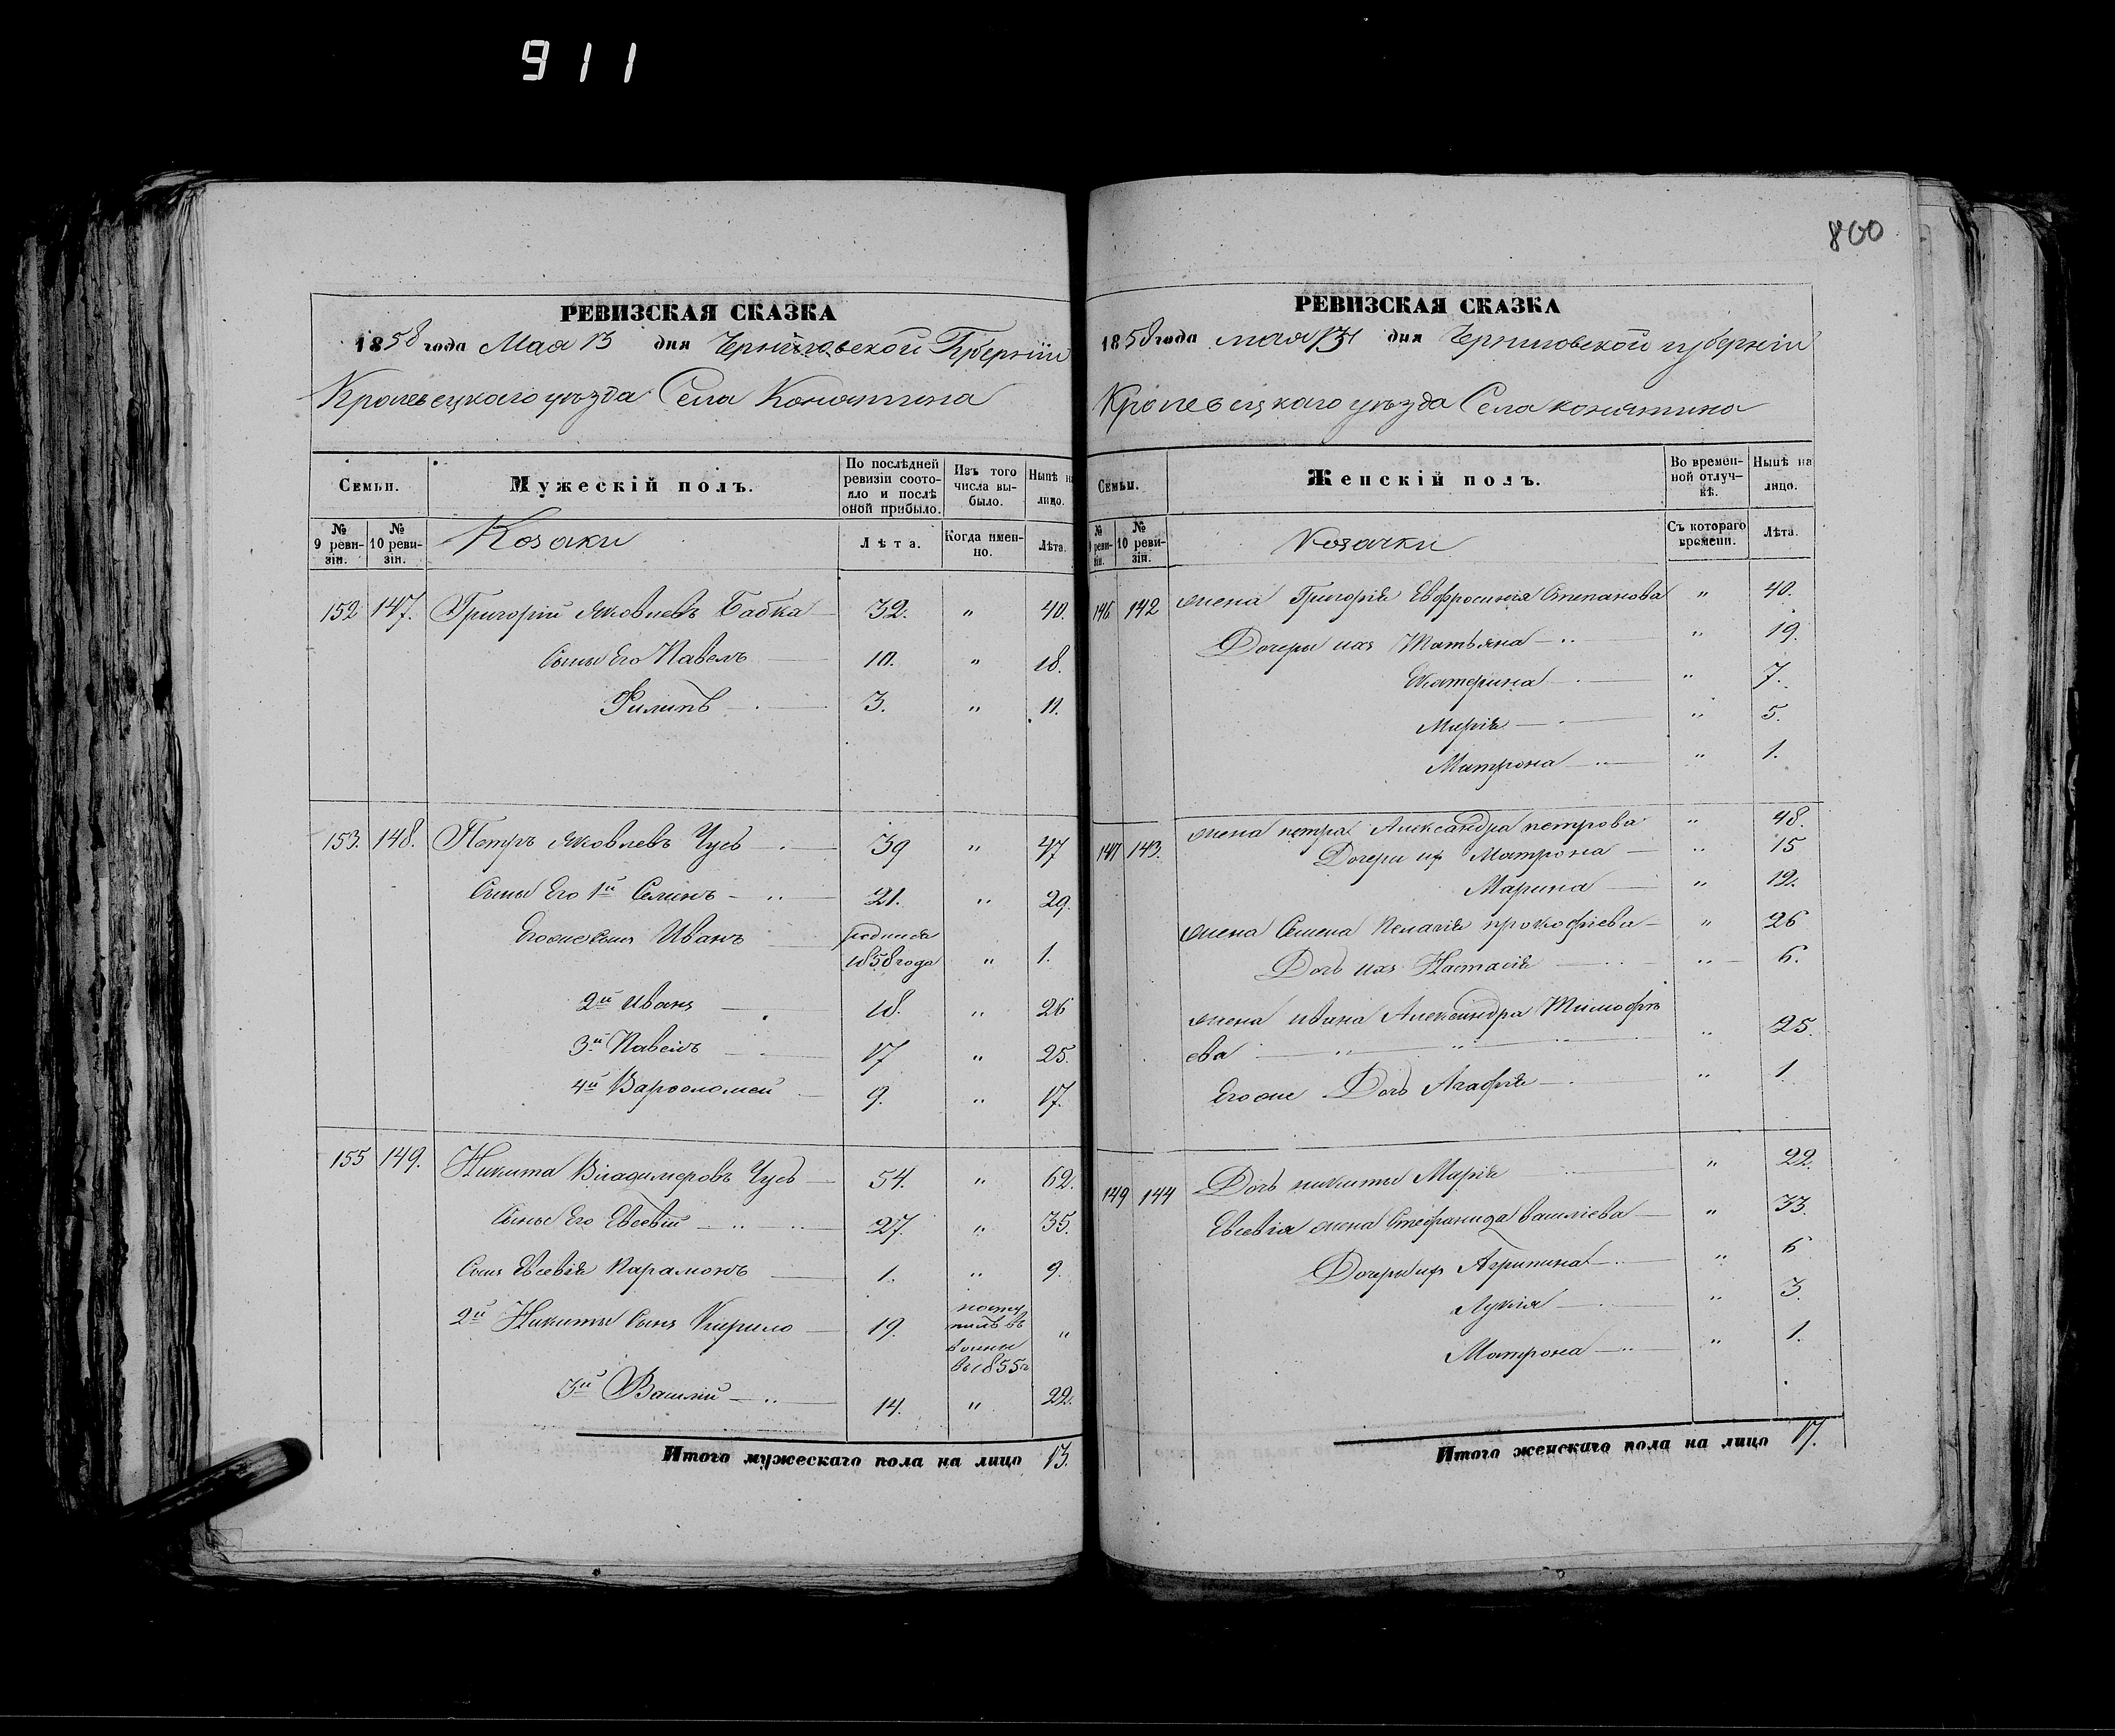 911
РЕВИЗСКАЯ СКАЗКА
1858 года Мая 13 дня Черниговской Губерніи
Кролевецкаго уѣзда Села Конятина
Семьи.
Мужескій полъ.
По послѣдней ревизіи состояло и послѣ оной прибыло.
Изъ того числа выбыло.
Нынѣ на лицо.
№ 9 ревизіи.
№ 10 ревизіи.
Козаки
Лѣта.
Когда именно.
Лѣта.
152 147. Григорій Яковлевъ Бабка 32. " 40.
Сыны Его Павелъ 10. " 18.
Филипъ 3. " 11.
153. 148. Петръ Яковлевъ Чусь 39 " 47
Сыны Его 1й Семенъ 21. " 29.
Его же сынъ Иванъ родился
1858 года " 1.
2й Иванъ 18. " 26
3й Павелъ 17 " 25.
4й Варфоломей 9. " 17.
155 149. Никита Владимеровъ Чусь 54. " 62.
Сыны Его Евсевій 27. " 35.
Сынъ Евсевія Парамонъ 1. " 9.
2й Никиты Сынъ Кирило 19. посту
пилъ въ "
воины
въ 1855 г
3й Василій 14. " 22.
Итого мужескаго пола на лицо 13.
800
РЕВИЗСКАЯ СКАЗКА
1858 года мая 13 дня Черниговской губерніи
Кролевецкаго уѣзда Села конятина
Семьи.
Женскій полъ.
Во временной отлучкѣ.
Нынѣ на лицо.
№ 9 ревизіи.
№ 10 ревизіи.
Козачки
Съ котораго времени.
Лѣта.
146 142 жена Григорія Евфросинія Степанова " 40.
Дочери ихъ Татьяна " 19.
Екатерина " 7.
Марія " 5.
Матрона " 1.
147 143. жена петра Александра петрова " 48.
Дочери их Матрона " 15
Марина " 12.
жена Семена Пелагія прокофіева " 26
Дочь ихъ Настасія " 6.
жена ивана Александра Тимофѣ
ева " 25.
Его же Дочь Агафія " 1.
149 144 Дочь никиты Марія " 22.
Евсевія жена Стефанида василіева " 33.
Дочери их Агрипина " 6
Лукія " 3.
Матрона " 1.
Итого женскаго пола на лицо 17.